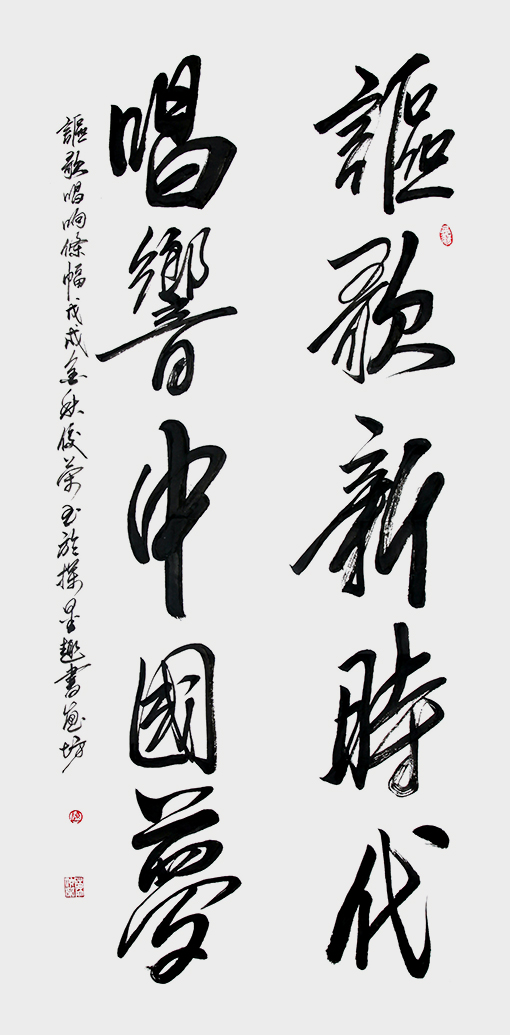 謳歌新時代
唱響中國夢
謳歌唱响條幅戊戌金秋俊榮書於探星趣書畫坊